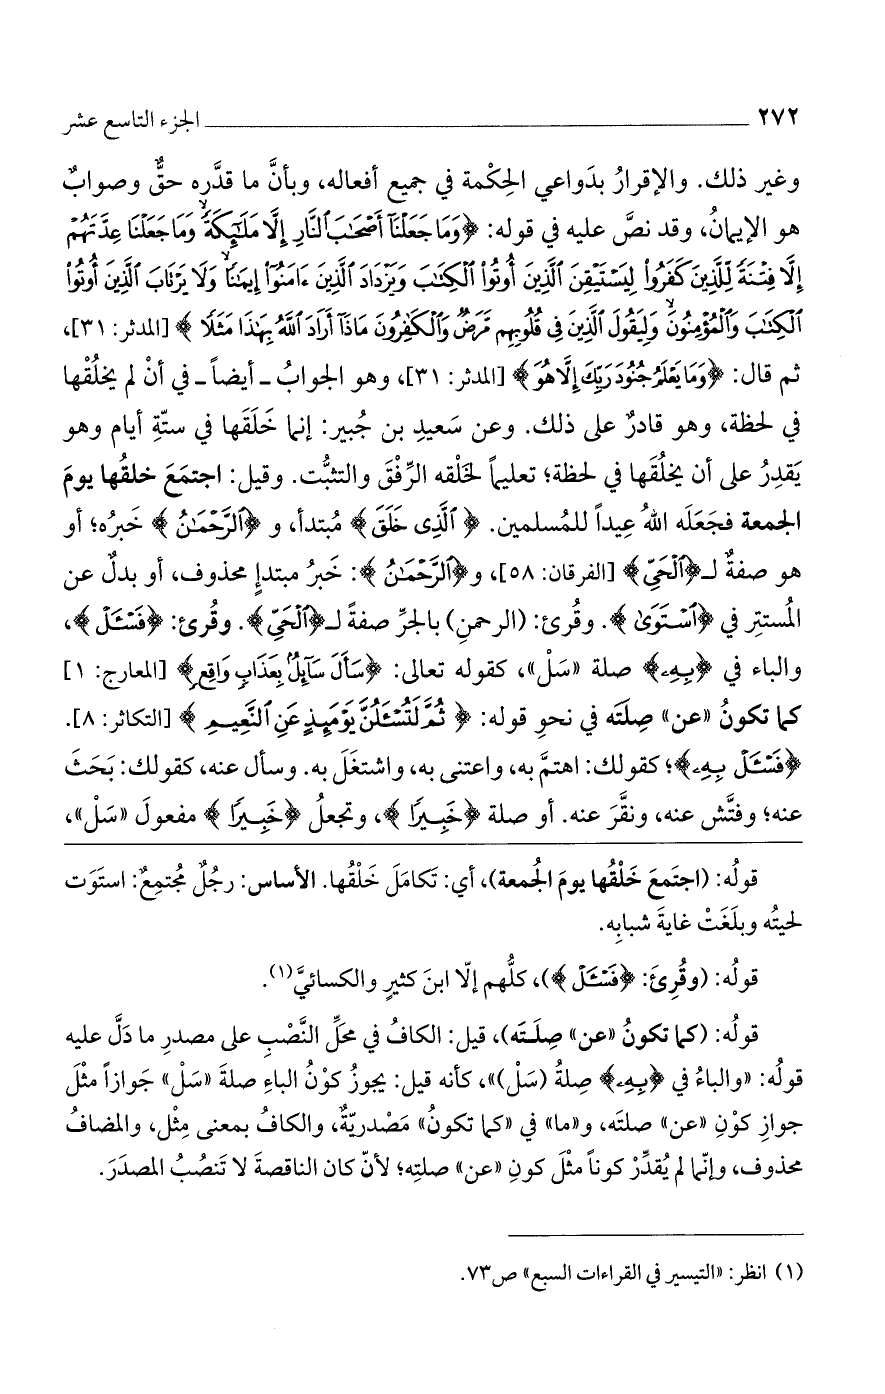 ٢٧٢ ـــــــــــ الجزء التاسع عشر
وغير ذلك. والإقرارُ بدَواعي الحِكْمة في جميع أفعاله، وبأنَّ ما قدَّره حقٌّ وصوابٌ
هو الإيمانُ، وقد نصَّ عليه في قوله: ﴿وَمَا جَعَلْنَآ أَصْحَٰبَ ٱلنَّارِ إِلَّا مَلَٰٓئِكَةً ۙ وَمَا جَعَلْنَا عِدَّتَهُمْ
إِلَّا فِتْنَةً لِّلَّذِينَ كَفَرُوا۟ لِيَسْتَيْقِنَ ٱلَّذِينَ أُوتُوا۟ ٱلْكِتَٰبَ وَيَزْدَادَ ٱلَّذِينَ ءَامَنُوٓا۟ إِيمَٰنًا ۙ وَلَا يَرْتَابَ ٱلَّذِينَ أُوتُوا۟
ٱلْكِتَٰبَ وَٱلْمُؤْمِنُونَ ۙ وَلِيَقُولَ ٱلَّذِينَ فِى قُلُوبِهِم مَّرَضٌ وَٱلْكَٰفِرُونَ مَاذَآ أَرَادَ ٱللَّهُ بِهَٰذَا مَثَلًا﴾ [المدثر: ٣١]،
ثم قال: ﴿وَمَا يَعْلَمُ جُنُودَ رَبِّكَ إِلَّا هُوَ﴾ [المدثر: ٣١]، وهو الجوابُ - أيضاً - في أنْ لم يخلُقْها
في لحظة، وهو قادرٌ على ذلك. وعن سَعيدِ بن جُبير: إنما خَلَقَها في ستّةِ أيام وهو
يَقدِرُ على أن يخلُقَها في لحظة؛ تعليماً لخَلْقه الرِّفْقَ والتثبُّت. وقيل: اجتمَعَ خلقُها يومَ
الجمعة فجَعَلَه اللهُ عِيداً للمُسلمين. ﴿ٱلَّذِى خَلَقَ﴾ مُبتدأ، و ﴿ٱلرَّحْمَٰنُ﴾ خَبرُه؛ أو
هو صفةٌ لـ﴿ٱلْحَيِّ﴾ [الفرقان: ٥٨]، و﴿ٱلرَّحْمَٰنُ﴾: خَبرُ مبتدإٍ محذوف، أو بدلٌ عن
المُستتِر في ﴿ٱسْتَوَىٰ﴾. وقُرئ: (الرحمنِ) بالجرِّ صفةً لـ﴿ٱلْحَيِّ﴾. وقُرئ: ﴿فَسْـَٔلْ﴾،
والباء في ﴿بِهِۦ﴾ صلة «سَلْ»، كقوله تعالى: ﴿سَأَلَ سَآئِلٌۢ بِعَذَابٍ وَاقِعٍ﴾ [المعارج: ١]
كما تكونُ «عن» صِلتَه في نحوِ قوله: ﴿ثُمَّ لَتُسْـَٔلُنَّ يَوْمَئِذٍ عَنِ ٱلنَّعِيمِ﴾ [التكاثر: ٨].
﴿فَسْـَٔلْ بِهِۦ﴾؛ كقولك: اهتمَّ به، واعتنى به، واشتغَلَ به. وسأل عنه، كقولك: بَحَثَ
عنه؛ وفتَّش عنه، ونقَّرَ عنه. أو صلة ﴿خَبِيرًا﴾، وتجعلُ ﴿خَبِيرًا﴾ مفعولَ «سَلْ»،
قولُه: (اجتَمعَ خَلْقُها يومَ الجُمعة)، أي: تَكامَلَ خَلْقُها. الأساس: رجُلٌ مُجتمِعٌ: استَوَت
لحيتُه وبلَغَتْ غايةَ شبابِه.
قولُه: (وقُرِئَ: ﴿فَسْـَٔلْ﴾)، كلُّهم إلّا ابنَ كثيرٍ والكسائيَّ(١).
قولُه: (كما تكونُ «عن» صِلَتَه)، قيل: الكافُ في محَلِّ النَّصْبِ على مصدرِ ما دَلَّ عليه
قولُه: «والباءُ في ﴿بِهِۦ﴾ صِلةُ (سَلْ)»، كأنه قيل: يجوزُ كوْنُ الباءِ صلةَ «سَلْ» جَوازاً مثْلَ
جوازِ كوْنِ «عن» صلتَه، و«ما» في «كما تكونُ» مَصْدريّةٌ، والكافُ بمعنى مِثْل، والمضافُ
محذوف، وإنّما لم يُقدِّرْ كوناً مثْلَ كونِ «عن» صلتِه؛ لأنّ كان الناقصةَ لا تَنصُبُ المصدَرَ.
(١) انظر: «التيسير في القراءات السبع» ص٧٣.